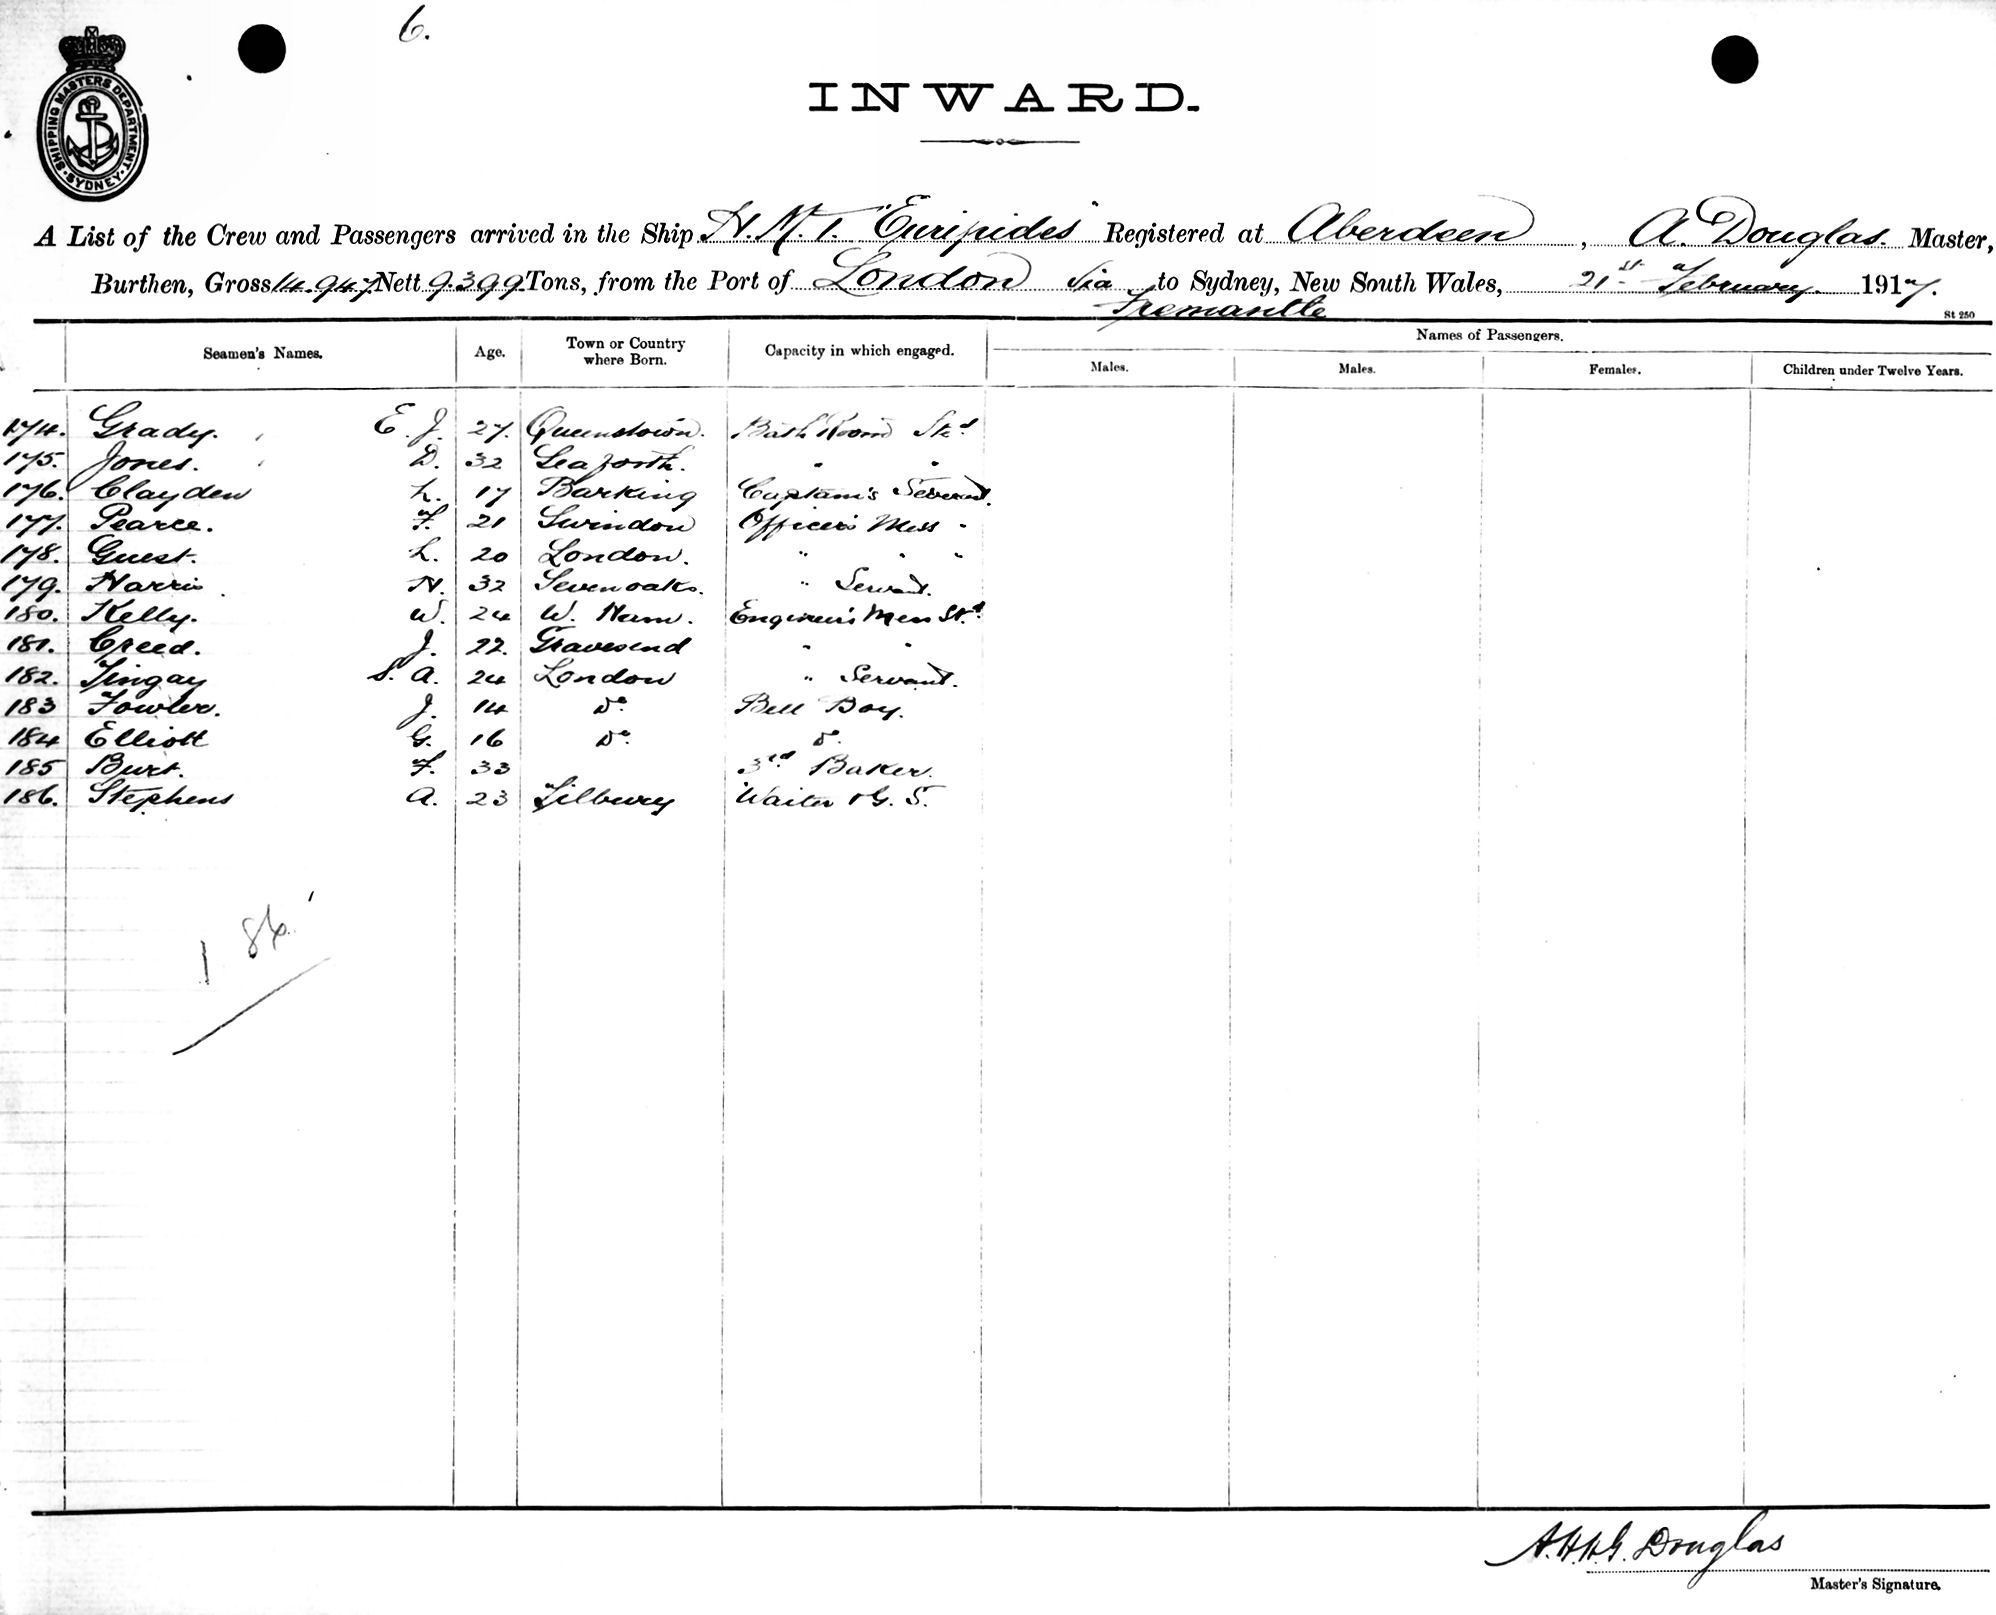 6.
SHIPPING MASTERS DEPARTMENT. SYDNEY.
INWARD.
A List of the Crew and Passengers arrived in the Ship H.M.T. "Euripides" Registered at Aberdeen, A. Douglas. Master,
Burthen, Gross 14.947 Nett 9.399 Tons, from the Port of London via to Sydney, New South Wales, 21st February 1917.
Fremantle
St 250
Seamen's Names. Age. Town or Country where Born. Capacity in which engaged. Names of Passengers.
Males. Males. Females. Children under Twelve Years.
174. Grady. E. J. 27. Queenstown. Bath Room Std
175. Jones. D. 32 Seaforth. " "
176. Clayden L. 17 Barking Captain's Servant.
177. Pearce. F. 21 Swindon Officers Mess "
178. Guest. L. 20 London. " " "
179. Harris H. 32 Sevenoaks. " Servant.
180. Kelly. W. 24 W. Ham. Engineer's Mess Std
181. Creed. J. 22. Gravesend " "
182. Tingay S. A. 24 London " Servant.
183 Fowler. J. 14 Do Bell Boy.
184 Elliott G. 16 Do. Do.
185 Burt. F. 33 3rd Baker.
186. Stephens A. 23 Tilbury Waiter & G. S.
186
A.H.H.G. Douglas
Master's Signature.